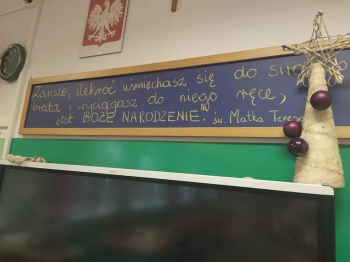 Zawsze, ilekroć uśmiechasz się do swojego
brata i wyciągasz do niego ręce,
jest BOŻE NARODZENIE." św. Matka Teresa